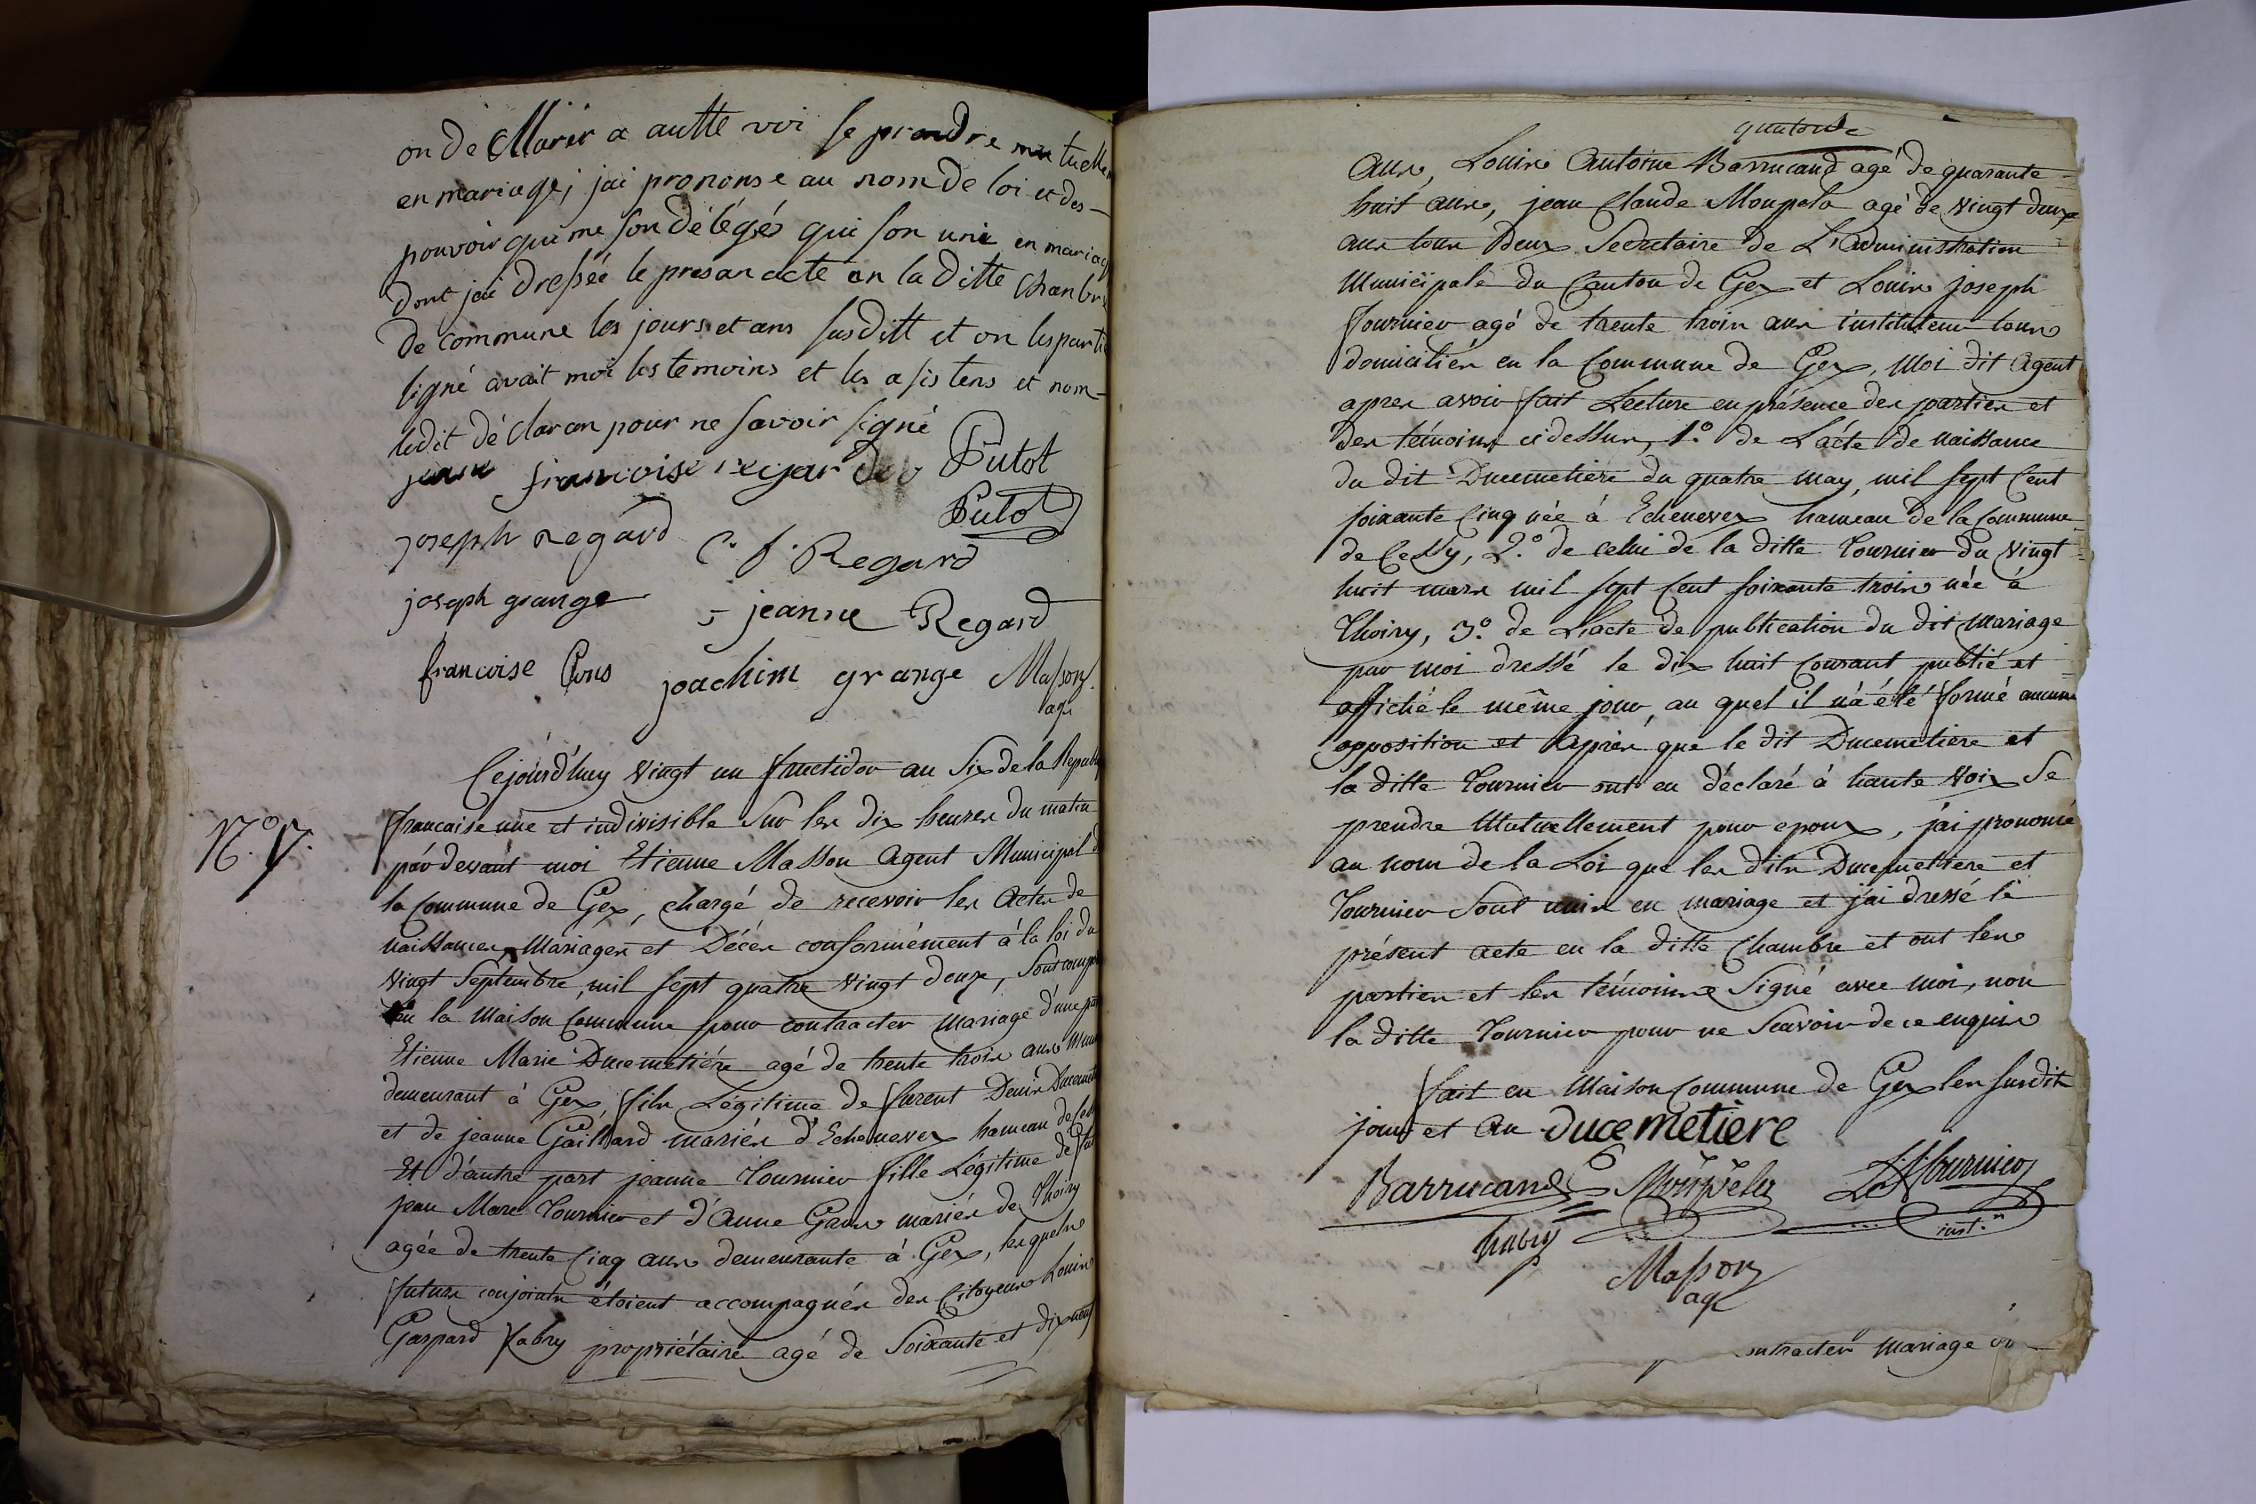 on dé Clarér a autte voi se prendre mutuelle
en mariage, jai prononsé au nom de loi et des
pouvoir qui me son délégés qui son uni en mariag
dont jai dressée le presan acte an la ditte chanbr
de commune les jours et ans susditt et on les partie
signé avait moi les temoins et les asistens et nom
ledit dé claran pour ne savoir signé
françoise regard Putot
Putot
joseph regard C. f. Regard
joseph grange jeanne Regard
francoise joachim grange Masson
agt
Cejourd'huy vingt un fructidor an Six de la Republ
N.° 7. francaise une et indivisible Sur les dix heures du matin
par devant moi Etienne Masson Agent Municipal d
la Commune de Gex, chargé de recevoir les Actes de
naissances, Mariages et Décès conformément à la loi du
vingt Septembre mil sept quatre vingt douze, Sont comp
en la Maison Commune pour contracter mariage d'une pa
Etienne Marie Ducemetiére agé de trente trois ans
demeurant à Gex, fils Légitime de furent Denis Ducemet
et de jeanne Gaillard mariés d'Echenevex hameau de Cess
Et d'autre part jeanne Tournier fille Légitime de
jean Marc Tournier et d'Anne Gras mariés de Thoiry
agée de trente Cinq ans demeurante à Gex, les quels
futurs conjoints étoient accompagnés des Citoyens Louis
Gaspard fabry propriétaire agé de Soixante et dix neuf
quatorze
ans, Louis Antoine Barrucand agé de quarante
huit ans, jean Claude Moupela agé de vingt deux
ans tous deux Secretaire de L'administration
Municipale du Canton de Gex et Louis joseph
fournier agé de trente trois ans instituteur tous
domiciliés en la Commune de Gex, Moi dit Agent
apres avoir fait Lecture en présence des parties et
des témoins cidessus, 1.° de L'acte de naissance
du dit Ducemetiere du quatre may mil sept Cent
soixante Cinq née à Echenevex hameau de la Commune
de Cessy, 2.° de celui de la ditte Tournier du vingt
huit mars mil sept Cent soixante trois née à
Thoiry, 3.° de L'acte de publication du dit mariage
par moi dressé le dix huit Courant publié et
affiché le même jour, au quel il n'a été formé aucune
opposition et Après que le dit Ducemetiere et
la ditte Tournier ont eu déclaré à haute voix Se
prendre Mutuellement pour epoux, j'ai prononcé
au nom de la Loi que les dits Ducemettiere et
Tournier Sont unis en mariage et j'ai dressé le
présent acte en la ditte Chambre et ont les
parties et les témoins Signé avec moi, non
la ditte Tournier pour ne Scavoir de ce enquise
fait en Maison Commune de Gex les susdits
jour et an ducemetiere
Barrucand Moupela L J fournier
fabry inst.r
Masson
agt
contracter Mariage